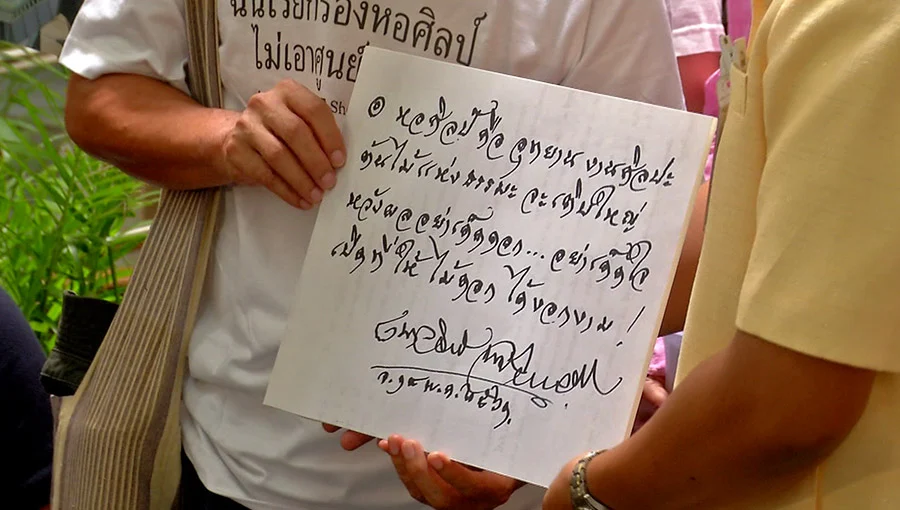 ฉันเรียกร้องหอศิลป์
ไม่เอาศูนย์
Sh
๏ หอศิลป์ คือ อุทยาน งานศิลปะ
ต้นไม้แห่งธรรมะ จะเติบใหญ่
หวังผลอย่าเด็ดดอก... อย่าเด็ดใบ
เปิดที่ให้ไม้ดอก ได้งอกงาม !